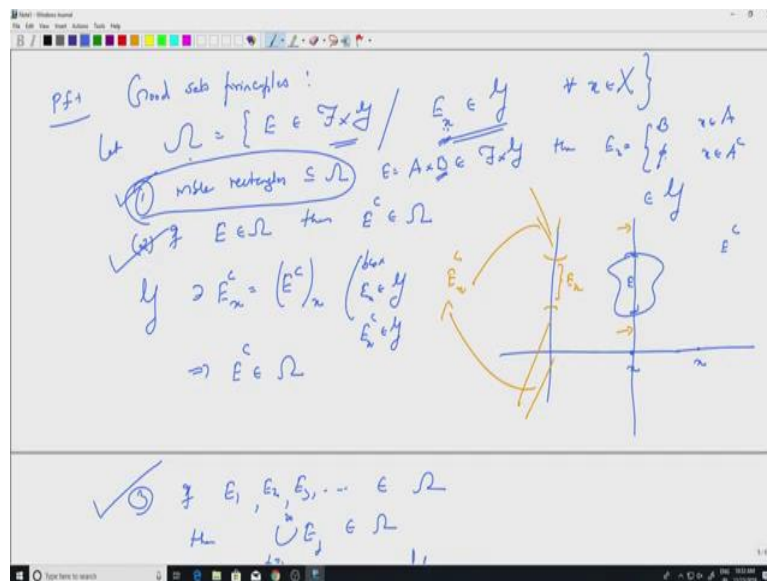 Note1 - Windows Journal
File Edit View Insert Actions Tools Help
Pf:- Good sets principles :
Let Ω = { E ∈ F×Y / E_x ∈ Y ∀ x ∈ X }
① mble rectangles ⊆ Ω E = A × B ∈ F×Y then E_x = { B x ∈ A
φ x ∈ A^c
∈ Y
(2) If E ∈ Ω then E^c ∈ Ω
Y ∋ E_x^c = (E^c)_x ( bcz
E_x ∈ Y
E_x^c ∈ Y
⇒ E^c ∈ Ω
E_x^c
E_x
E
E^c
x
x
③ If E_1, E_2, E_3, ... ∈ Ω
then ∪ E_j ∈ Ω
Type here to search